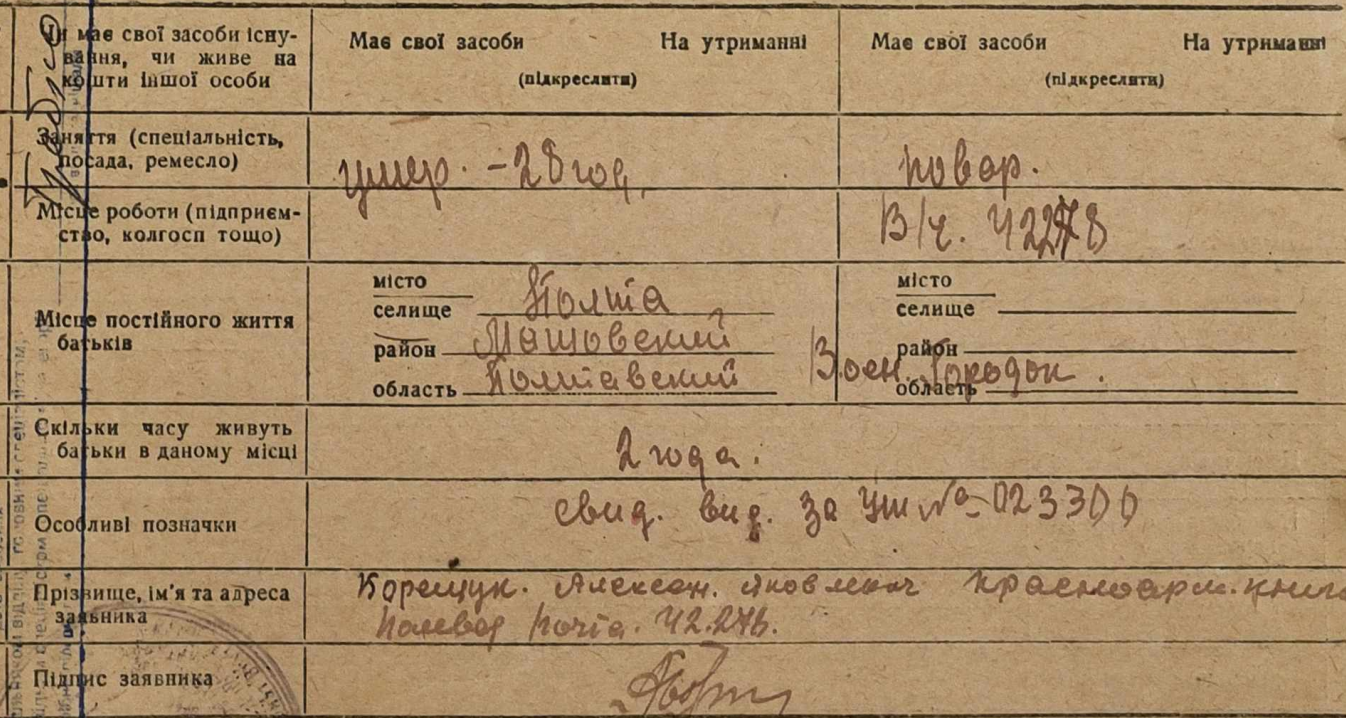 Чи має свої засоби існу-
вання, чи живе на
кошти іншої особи
Має свої засоби На утриманні
(підкреслити)
Має свої засоби На утриманні
(підкреслити)
Заняття (спеціальність,
посада, ремесло)
умер. - 28 год,
повар.
Місце роботи (підприєм-
ство, колгосп тощо)
В/ч. 42278
Місце постійного життя
батьків
місто
селище
район
область Полтавский
місто
селище
район
область
Воен. Городок.
Скільки часу живуть
батьки в даному місці
2 года.
Особливі позначки
свид. выд. за №-023300
Прізвище, ім'я та адреса
заявника
Корещук. Алексан. Яковлевич Красноарм. книж
почта. 42.276.
Підпис заявника